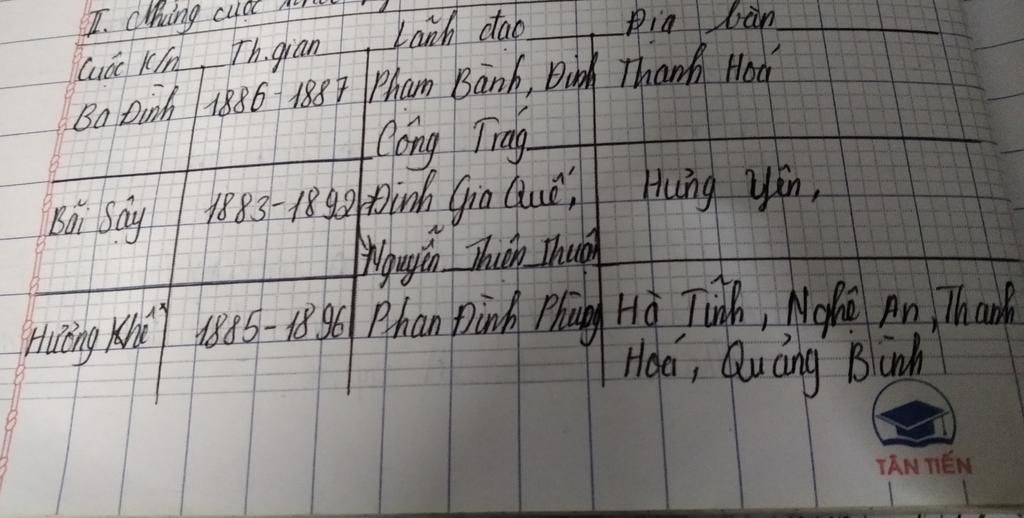 II. Những cuộc
Cuộc K/n Th.gian Lãnh đạo Địa bàn
Ba Đình 1886-1887 Phạm Bành, Đinh Thanh Hoá
Công Tráng
Bãi Sậy 1883-1892 Đinh Gia Quế, Hưng Yên,
Nguyễn Thiện Thuật
Hương Khê 1885-1896 Phan Đình Phùng Hà Tĩnh, Nghệ An, Thanh
Hoá, Quảng Bình
TÂN TIẾN